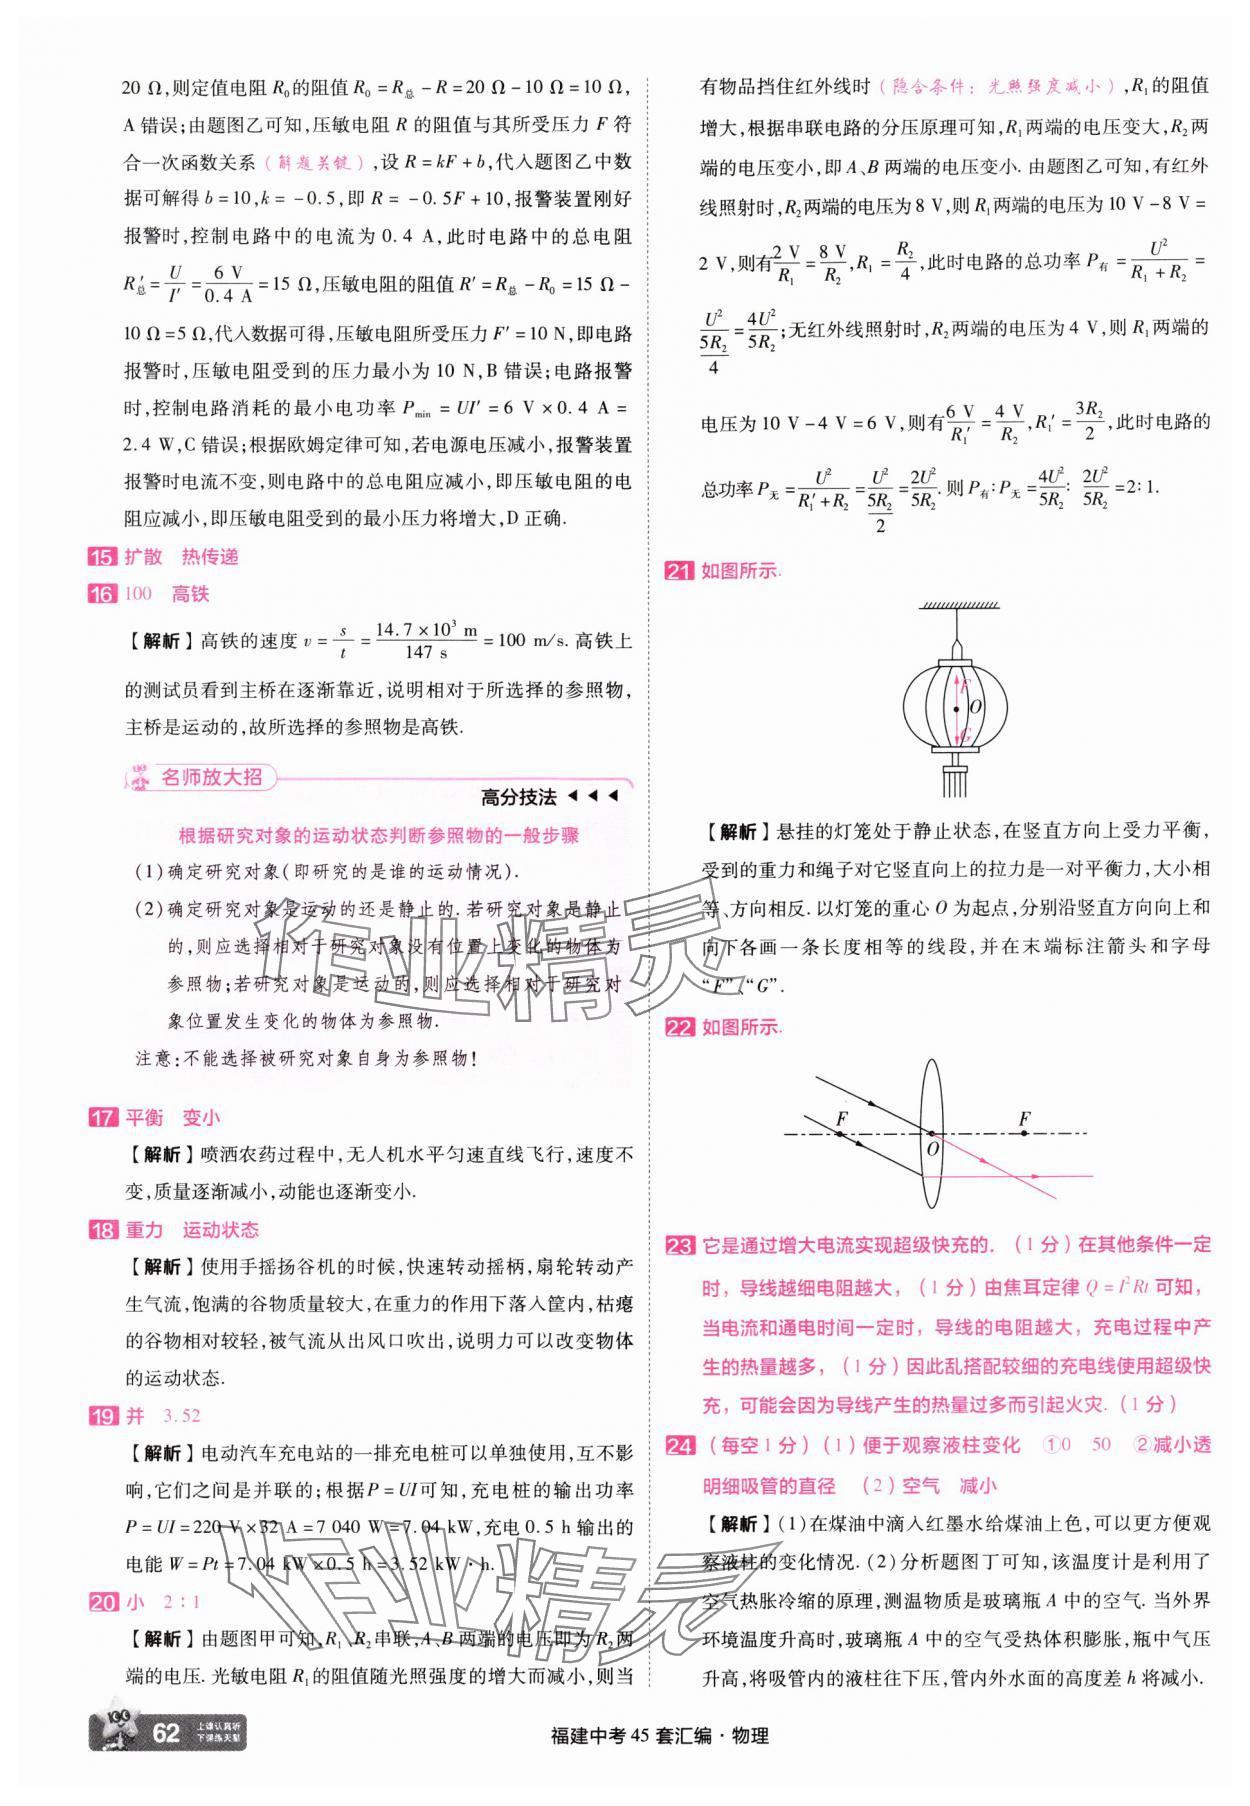 20 Ω,则定值电阻 R₀的阻值 R₀=R总-R=20 Ω-10 Ω=10 Ω,
A 错误;由题图乙可知,压敏电阻 R 的阻值与其所受压力 F 符
合一次函数关系(解题关键),设 R=kF+b,代入题图乙中数
据可解得 b=10,k=-0.5,即 R=-0.5F+10,报警装置刚好
报警时,控制电路中的电流为 0.4 A,此时电路中的总电阻
R′总=U/I′=6 V/0.4 A=15 Ω,压敏电阻的阻值 R′=R总-R₀=15 Ω-
10 Ω=5 Ω,代入数据可得,压敏电阻所受压力 F′=10 N,即电路
报警时,压敏电阻受到的压力最小为 10 N,B 错误;电路报警
时,控制电路消耗的最小电功率 Pmin=UI′=6 V×0.4 A=
2.4 W,C 错误;根据欧姆定律可知,若电源电压减小,报警装置
报警时电流不变,则电路中的总电阻应减小,即压敏电阻的电
阻应减小,即压敏电阻受到的最小压力将增大,D 正确.
15 扩散 热传递
16 100 高铁
【解析】高铁的速度 v=s/t=14.7×10³ m/147 s=100 m/s.高铁上
的测试员看到主桥在逐渐靠近,说明相对于所选择的参照物,
主桥是运动的,故所选择的参照物是高铁.
名师放大招
高分技法 ◀ ◀ ◀
根据研究对象的运动状态判断参照物的一般步骤
(1)确定研究对象(即研究的是谁的运动情况).
(2)确定研究对象是运动的还是静止的.若研究对象是静止
的,则应选择相对于研究对象没有位置上变化的物体为
参照物;若研究对象是运动的,则应选择相对于研究对
象位置发生变化的物体为参照物.
注意:不能选择被研究对象自身为参照物!
17 平衡 变小
【解析】喷洒农药过程中,无人机水平匀速直线飞行,速度不
变,质量逐渐减小,动能也逐渐变小.
18 重力 运动状态
【解析】使用手摇扬谷机的时候,快速转动摇柄,扇轮转动产
生气流,饱满的谷物质量较大,在重力的作用下落入筐内,枯瘪
的谷物相对较轻,被气流从出风口吹出,说明力可以改变物体
的运动状态.
19 并 3.52
【解析】电动汽车充电站的一排充电桩可以单独使用,互不影
响,它们之间是并联的;根据 P=UI可知,充电桩的输出功率
P=UI=220 V×32 A=7 040 W=7.04 kW,充电 0.5 h 输出的
电能 W=Pt=7.04 kW×0.5 h=3.52 kW·h.
20 小 2∶1
【解析】由题图甲可知,R₁、R₂串联,A、B 两端的电压即为 R₂两
端的电压.光敏电阻 R₁的阻值随光照强度的增大而减小,则当
有物品挡住红外线时(隐含条件:光照强度减小),R₁的阻值
增大,根据串联电路的分压原理可知,R₁两端的电压变大,R₂两
端的电压变小,即 A、B 两端的电压变小.由题图乙可知,有红外
线照射时,R₂两端的电压为 8 V,则 R₁两端的电压为 10 V-8 V=
2 V,则有2 V/R₁=8 V/R₂,R₁=R₂/4,此时电路的总功率 P有=U²/(R₁+R₂)=
U²/(5R₂/4)=4U²/5R₂;无红外线照射时,R₂两端的电压为 4 V,则 R₁两端的
电压为 10 V-4 V=6 V,则有6 V/R₁′=4 V/R₂,R₁′=3R₂/2,此时电路的
总功率 P无=U²/(R₁′+R₂)=U²/(5R₂/2)=2U²/5R₂.则 P有∶P无=4U²/5R₂∶2U²/5R₂=2∶1.
21 如图所示.
F
O
G
【解析】悬挂的灯笼处于静止状态,在竖直方向上受力平衡,
受到的重力和绳子对它竖直向上的拉力是一对平衡力,大小相
等、方向相反.以灯笼的重心 O 为起点,分别沿竖直方向向上和
向下各画一条长度相等的线段,并在末端标注箭头和字母
“F”、“G”.
22 如图所示.
F F
O
23 它是通过增大电流实现超级快充的.(1 分)在其他条件一定
时,导线越细电阻越大,(1 分)由焦耳定律 Q=I²Rt 可知,
当电流和通电时间一定时,导线的电阻越大,充电过程中产
生的热量越多,(1 分)因此乱搭配较细的充电线使用超级快
充,可能会因为导线产生的热量过多而引起火灾.(1 分)
24 (每空 1 分)(1)便于观察液柱变化 ①0 50 ②减小透
明细吸管的直径 (2)空气 减小
【解析】(1)在煤油中滴入红墨水给煤油上色,可以更方便观
察液柱的变化情况.(2)分析题图丁可知,该温度计是利用了
空气热胀冷缩的原理,测温物质是玻璃瓶 A 中的空气.当外界
环境温度升高时,玻璃瓶 A 中的空气受热体积膨胀,瓶中气压
升高,将吸管内的液柱往下压,管内外水面的高度差 h 将减小.
作业精灵
作业精灵
62 上课认真听
下课练天星
福建中考 45 套汇编·物理